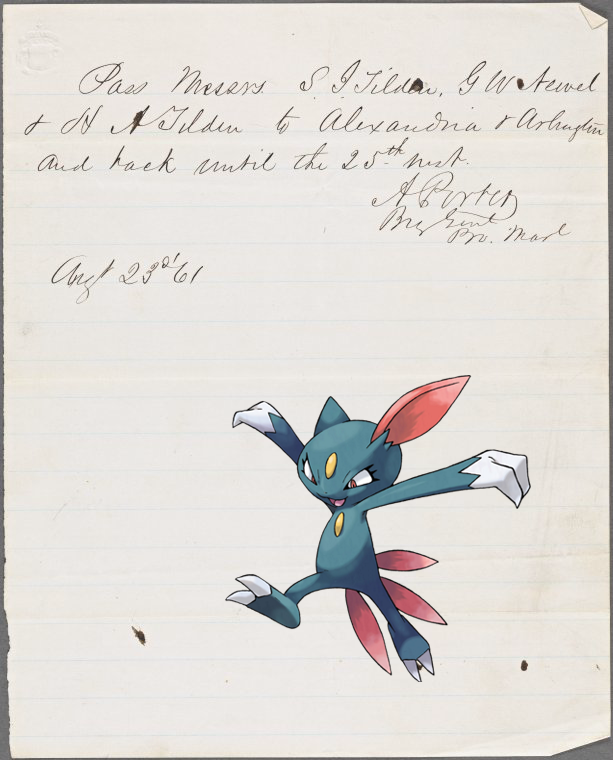 Pass Messrs S J Tilden, G W Newel
& H A Tilden to Alexandria & Arlington
and back until the 25th inst.
A Porter
Brig Genl
Pro. Marl
Augt 23d 61